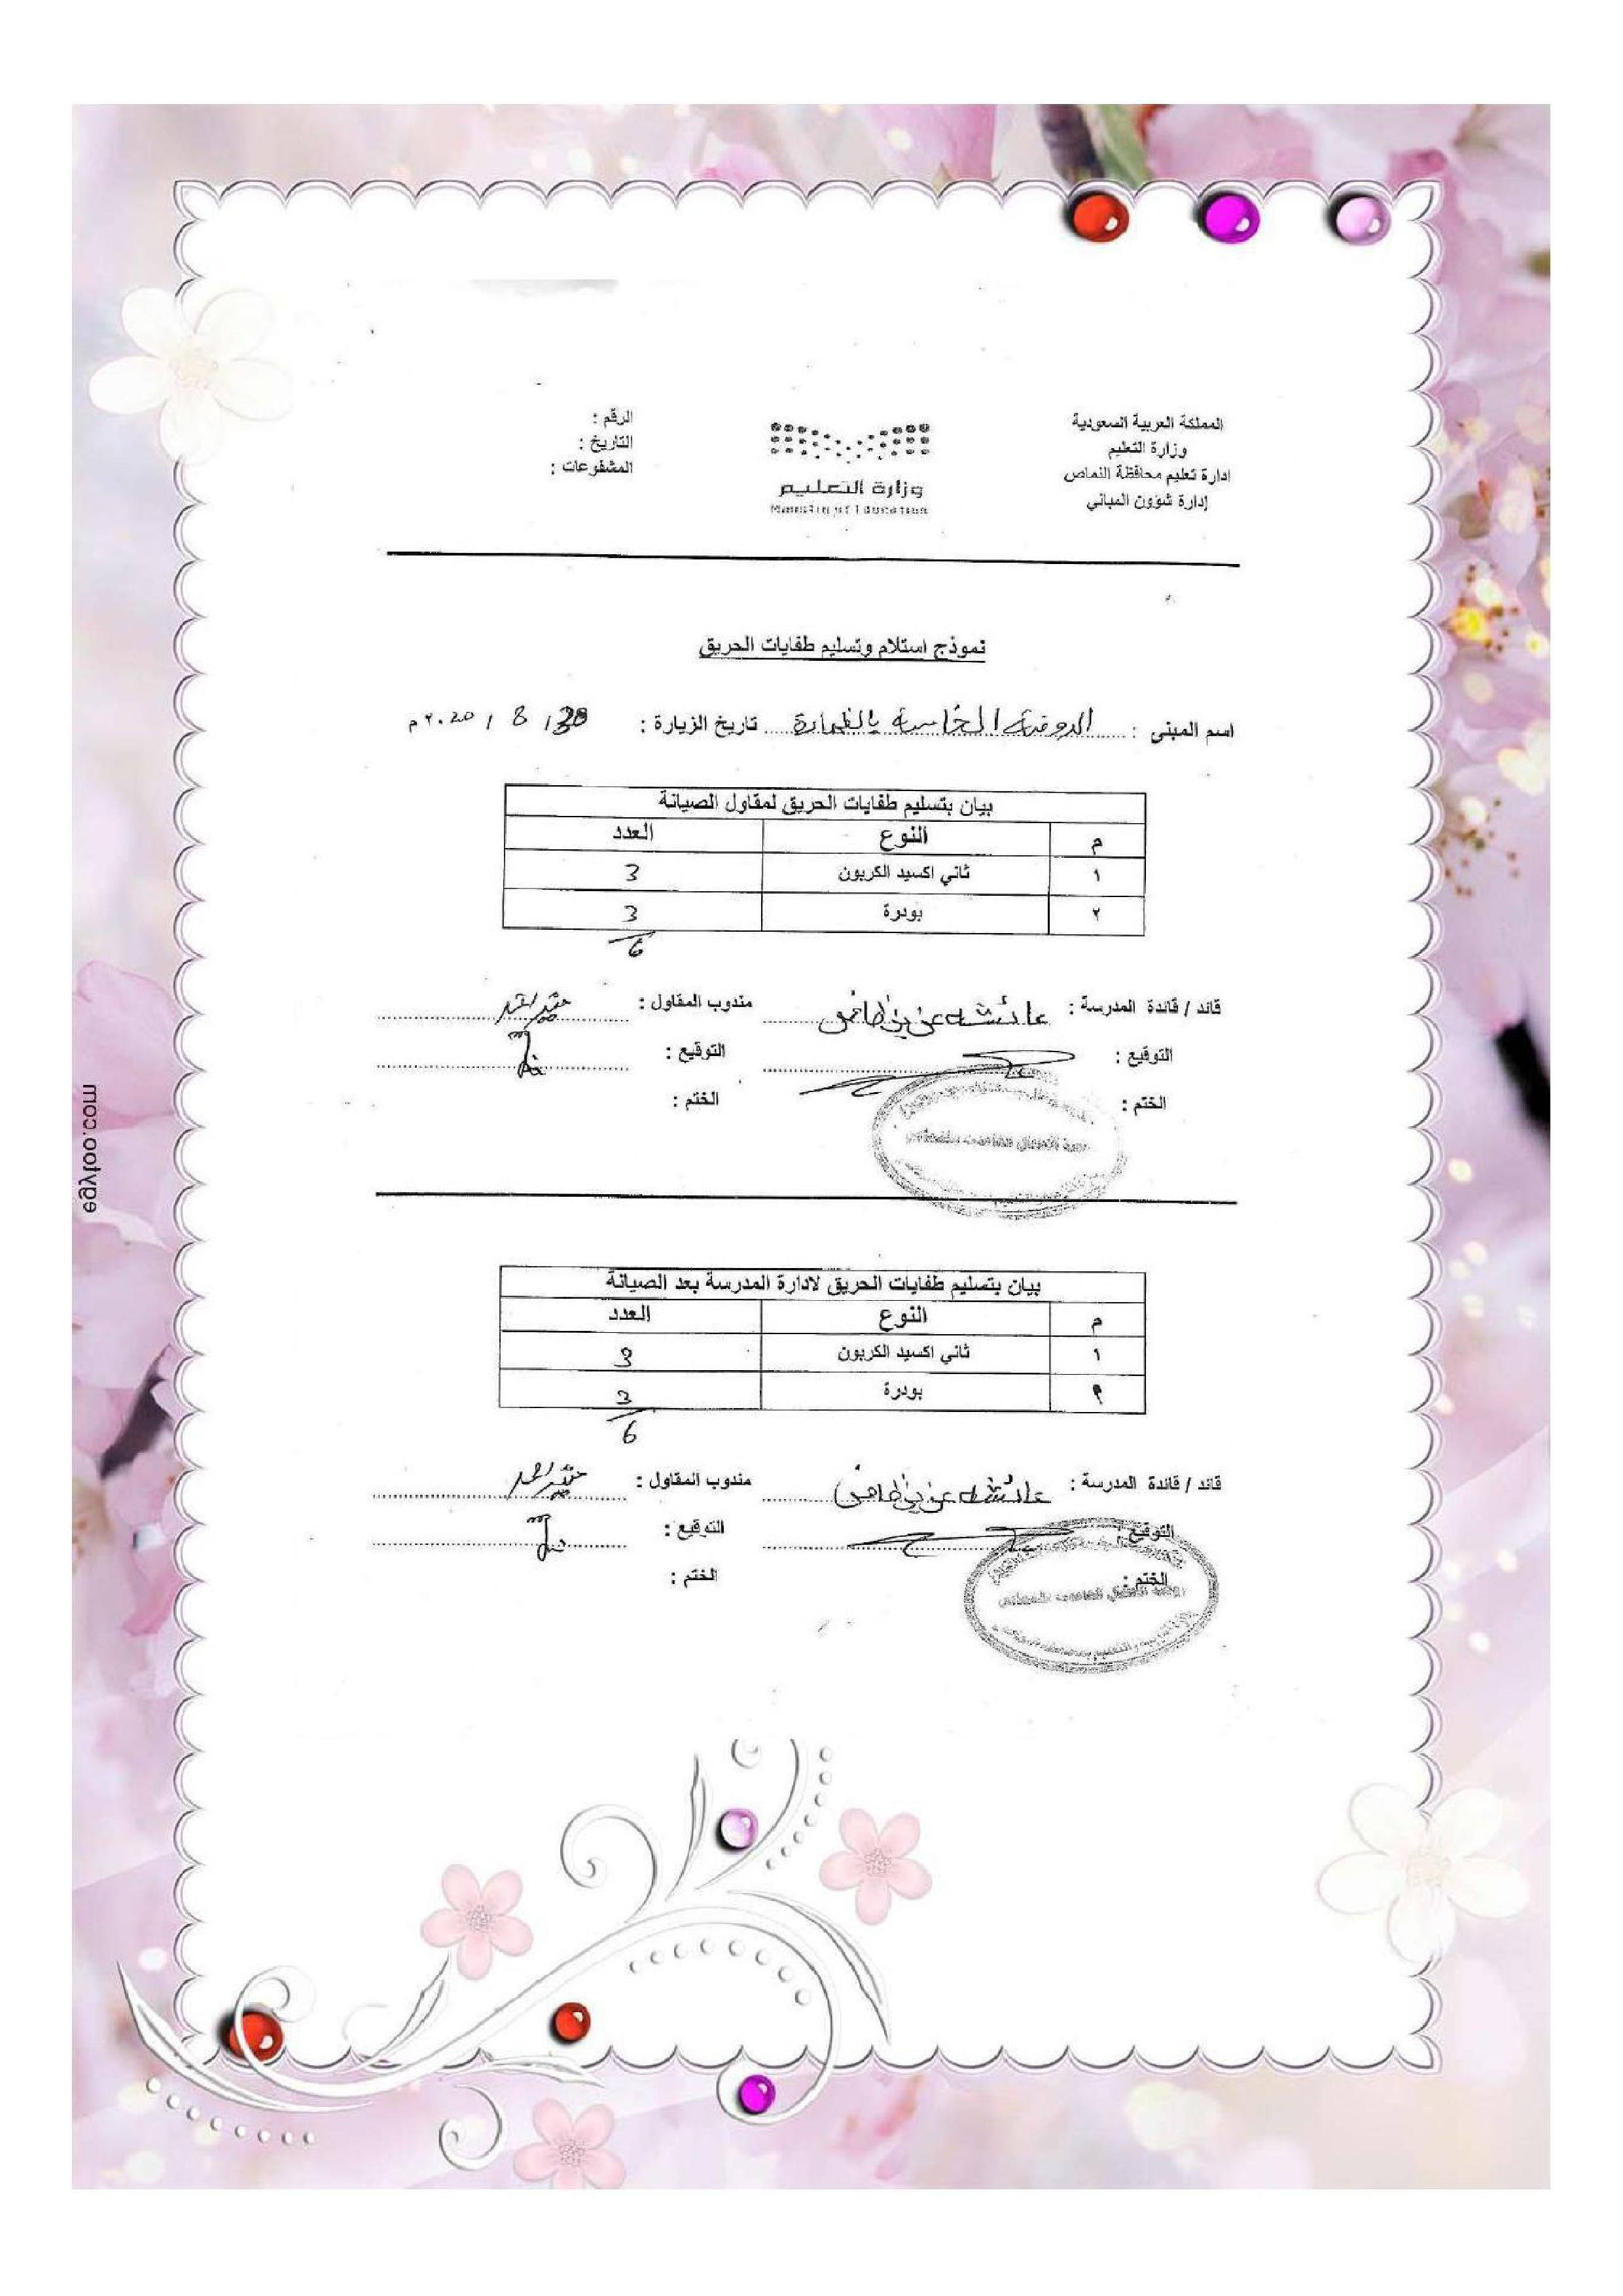 المملكة العربية السعودية
وزارة التعليم
ادارة تعليم محافظة النماص
إدارة شؤون المباني
وزارة التعليم
Ministry of Education
الرقم :
التاريخ :
المشفوعات :
نموذج استلام وتسليم طفايات الحريق
اسم المبنى : الروضة الخامسة تاريخ الزيارة : 8 / م
بيان بتسليم طفايات الحريق لمقاول الصيانة
م النوع العدد
١ ثاني اكسيد الكربون 3
٢ بودرة 3
6
قائد / قائدة المدرسة : عائشة مندوب المقاول :
التوقيع : التوقيع :
الختم : الختم :
بيان بتسليم طفايات الحريق لادارة المدرسة بعد الصيانة
م النوع العدد
١ ثاني اكسيد الكربون 3
٢ بودرة 3
6
قائد / قائدة المدرسة : عائشة مندوب المقاول :
التوقيع : التوقيع :
الختم : الختم :